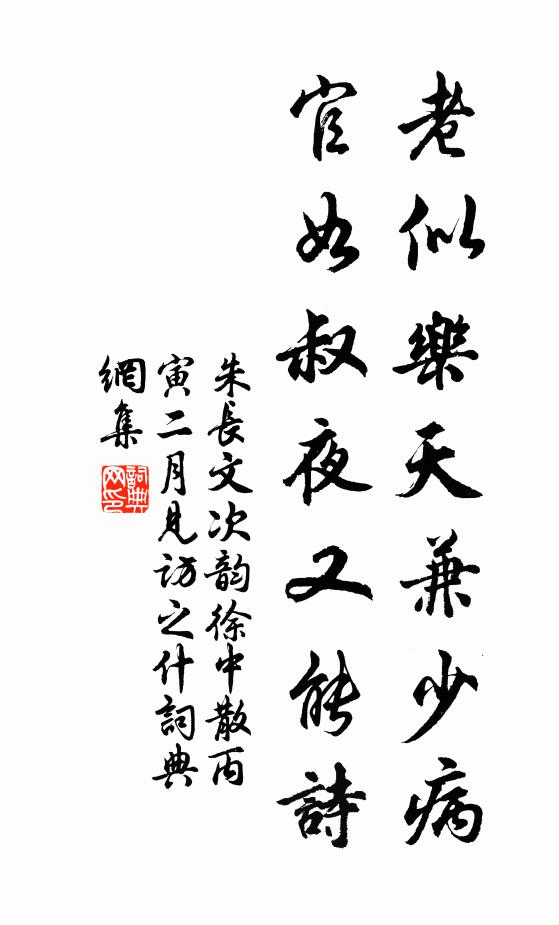 老似樂天兼少病
官如叔夜又能詩
朱長文次韵徐中散丙
寅二月見訪之什詞典
網集
詞典網印